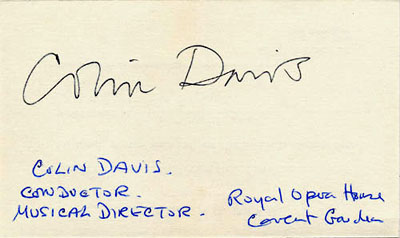 Colin Davis
COLIN DAVIS.
CONDUCTOR.
MUSICAL DIRECTOR.
Royal Opera House
Covent Garden